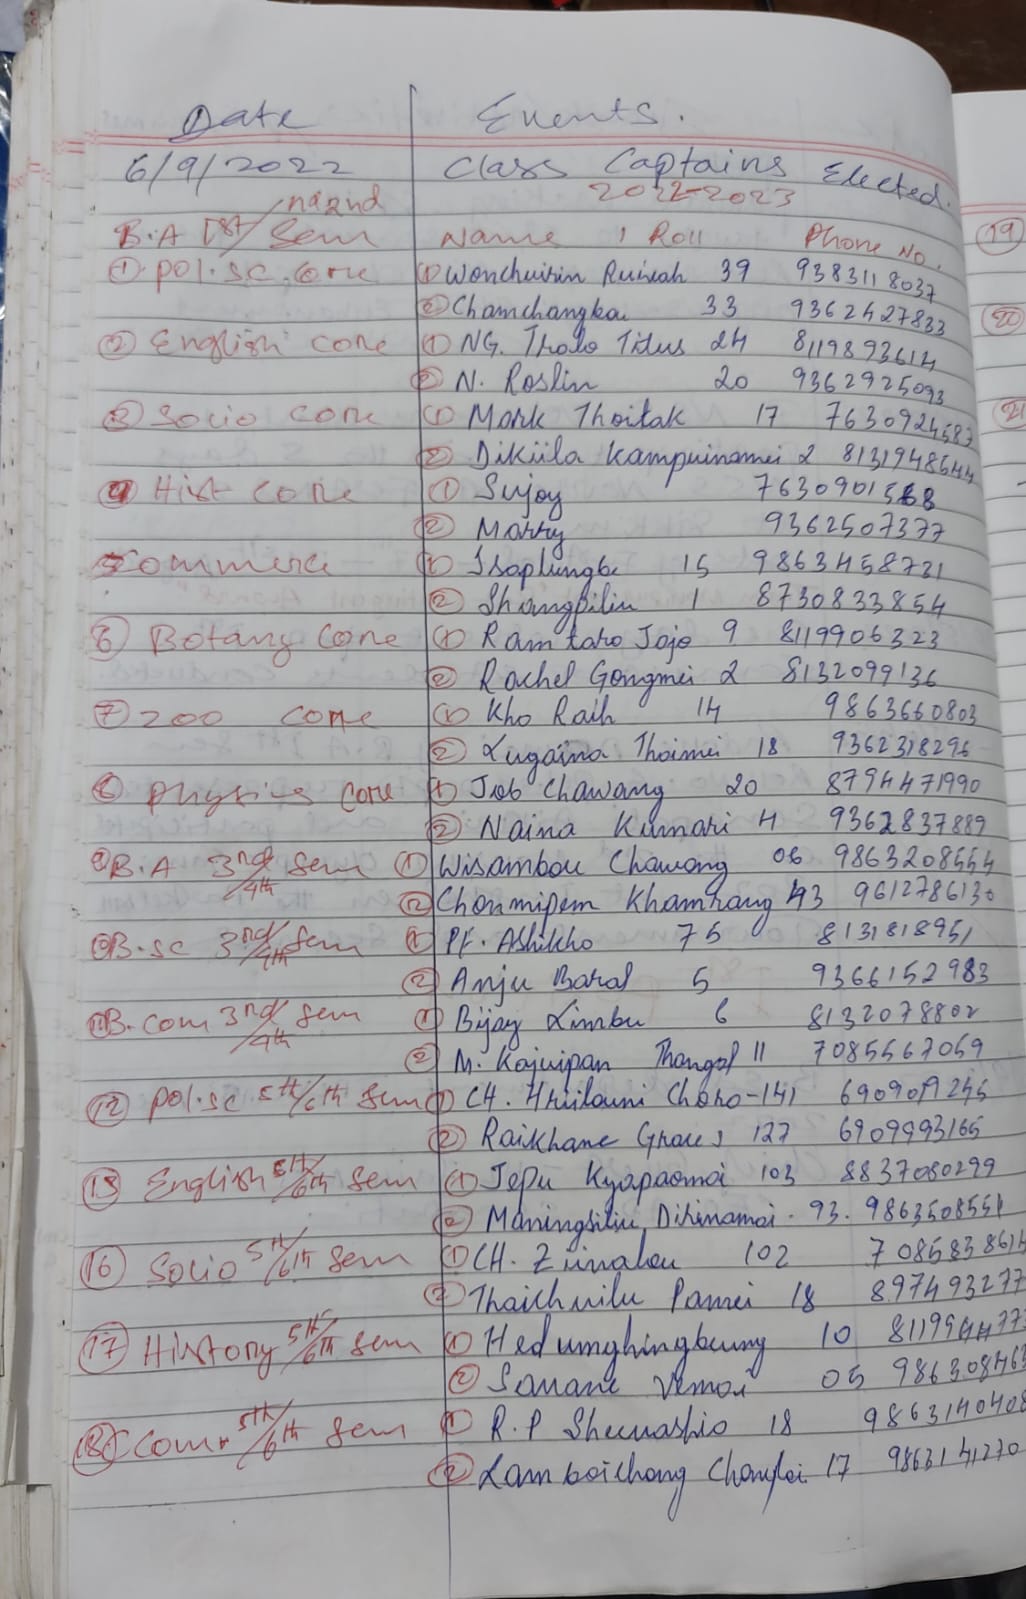 Date Events.
6/9/2022 Class Captains Elected.
2022-2023
B.A 1st/2nd Sem Name , Roll Phone No.
① Pol.sc. Core ① Wonchuirin Ruivah 39 9383118037
② Chamchangka 33 9362427833
② English core ① NG. Tholo Titus 24 8119893614
② N. Roslin 20 9362925093
③ Socio core ① Mark Thoitak 17 7630924587
② Dikiila Kampuinamei 2 8131948544
④ Hist core ① Sujoy 7630901568
② Marry 9362507377
5 Commerce ① Isaplungbe 15 9863458721
② Shangpiliu 1 8730833854
6 Botany Core ① Ramtaho Jojo 9 8119906323
② Rachel Gongmei 2 8132099136
⑦ zoo core ① Kho Raih 14 9863660803
② Lugaina Thaimei 18 9362318296
⑧ Physics core ① Job Chawang 20 8794471990
② Naina Kumari 4 9362837889
⑨ B.A 3rd/4th Sem ① Wisambou Chawang 06 9863208554
② Chonmipem Khamrang 43 9612786130
⑩ B.sc 3rd/4th Sem ① Pf. Ashikho 75 8131818951
② Anju Baral 5 9366152983
⑪ B.com 3rd/4th Sem ① Bijay Limbu 6 8132078802
② M. Kajuipan Thangal 11 7085567059
⑫ Pol.sc 5th/6th Sem ① CH. Hriilouni Choro-141
② Raikhane Grace , 127 6909993165
⑬ English 5th/6th Sem ① Jepu Kyapaomai 103 8837080299
② Maningsiliu Dikinamai. 93. 9863508551
⑯ Socio 5th/6th Sem ① CH. Ziinalou 102 7085838614
② Thaichuilu Pamei 18 897493277
⑰ History 5th/6th Sem ① Hedumghingbeung 10
② Sanane Vemai 05 986308463
⑱ Com. 5th/6th Sem ① R.P Sheunashio 18 986314040
② Lamboichong Chongloi 17 9863141270
⑲
⑳
21